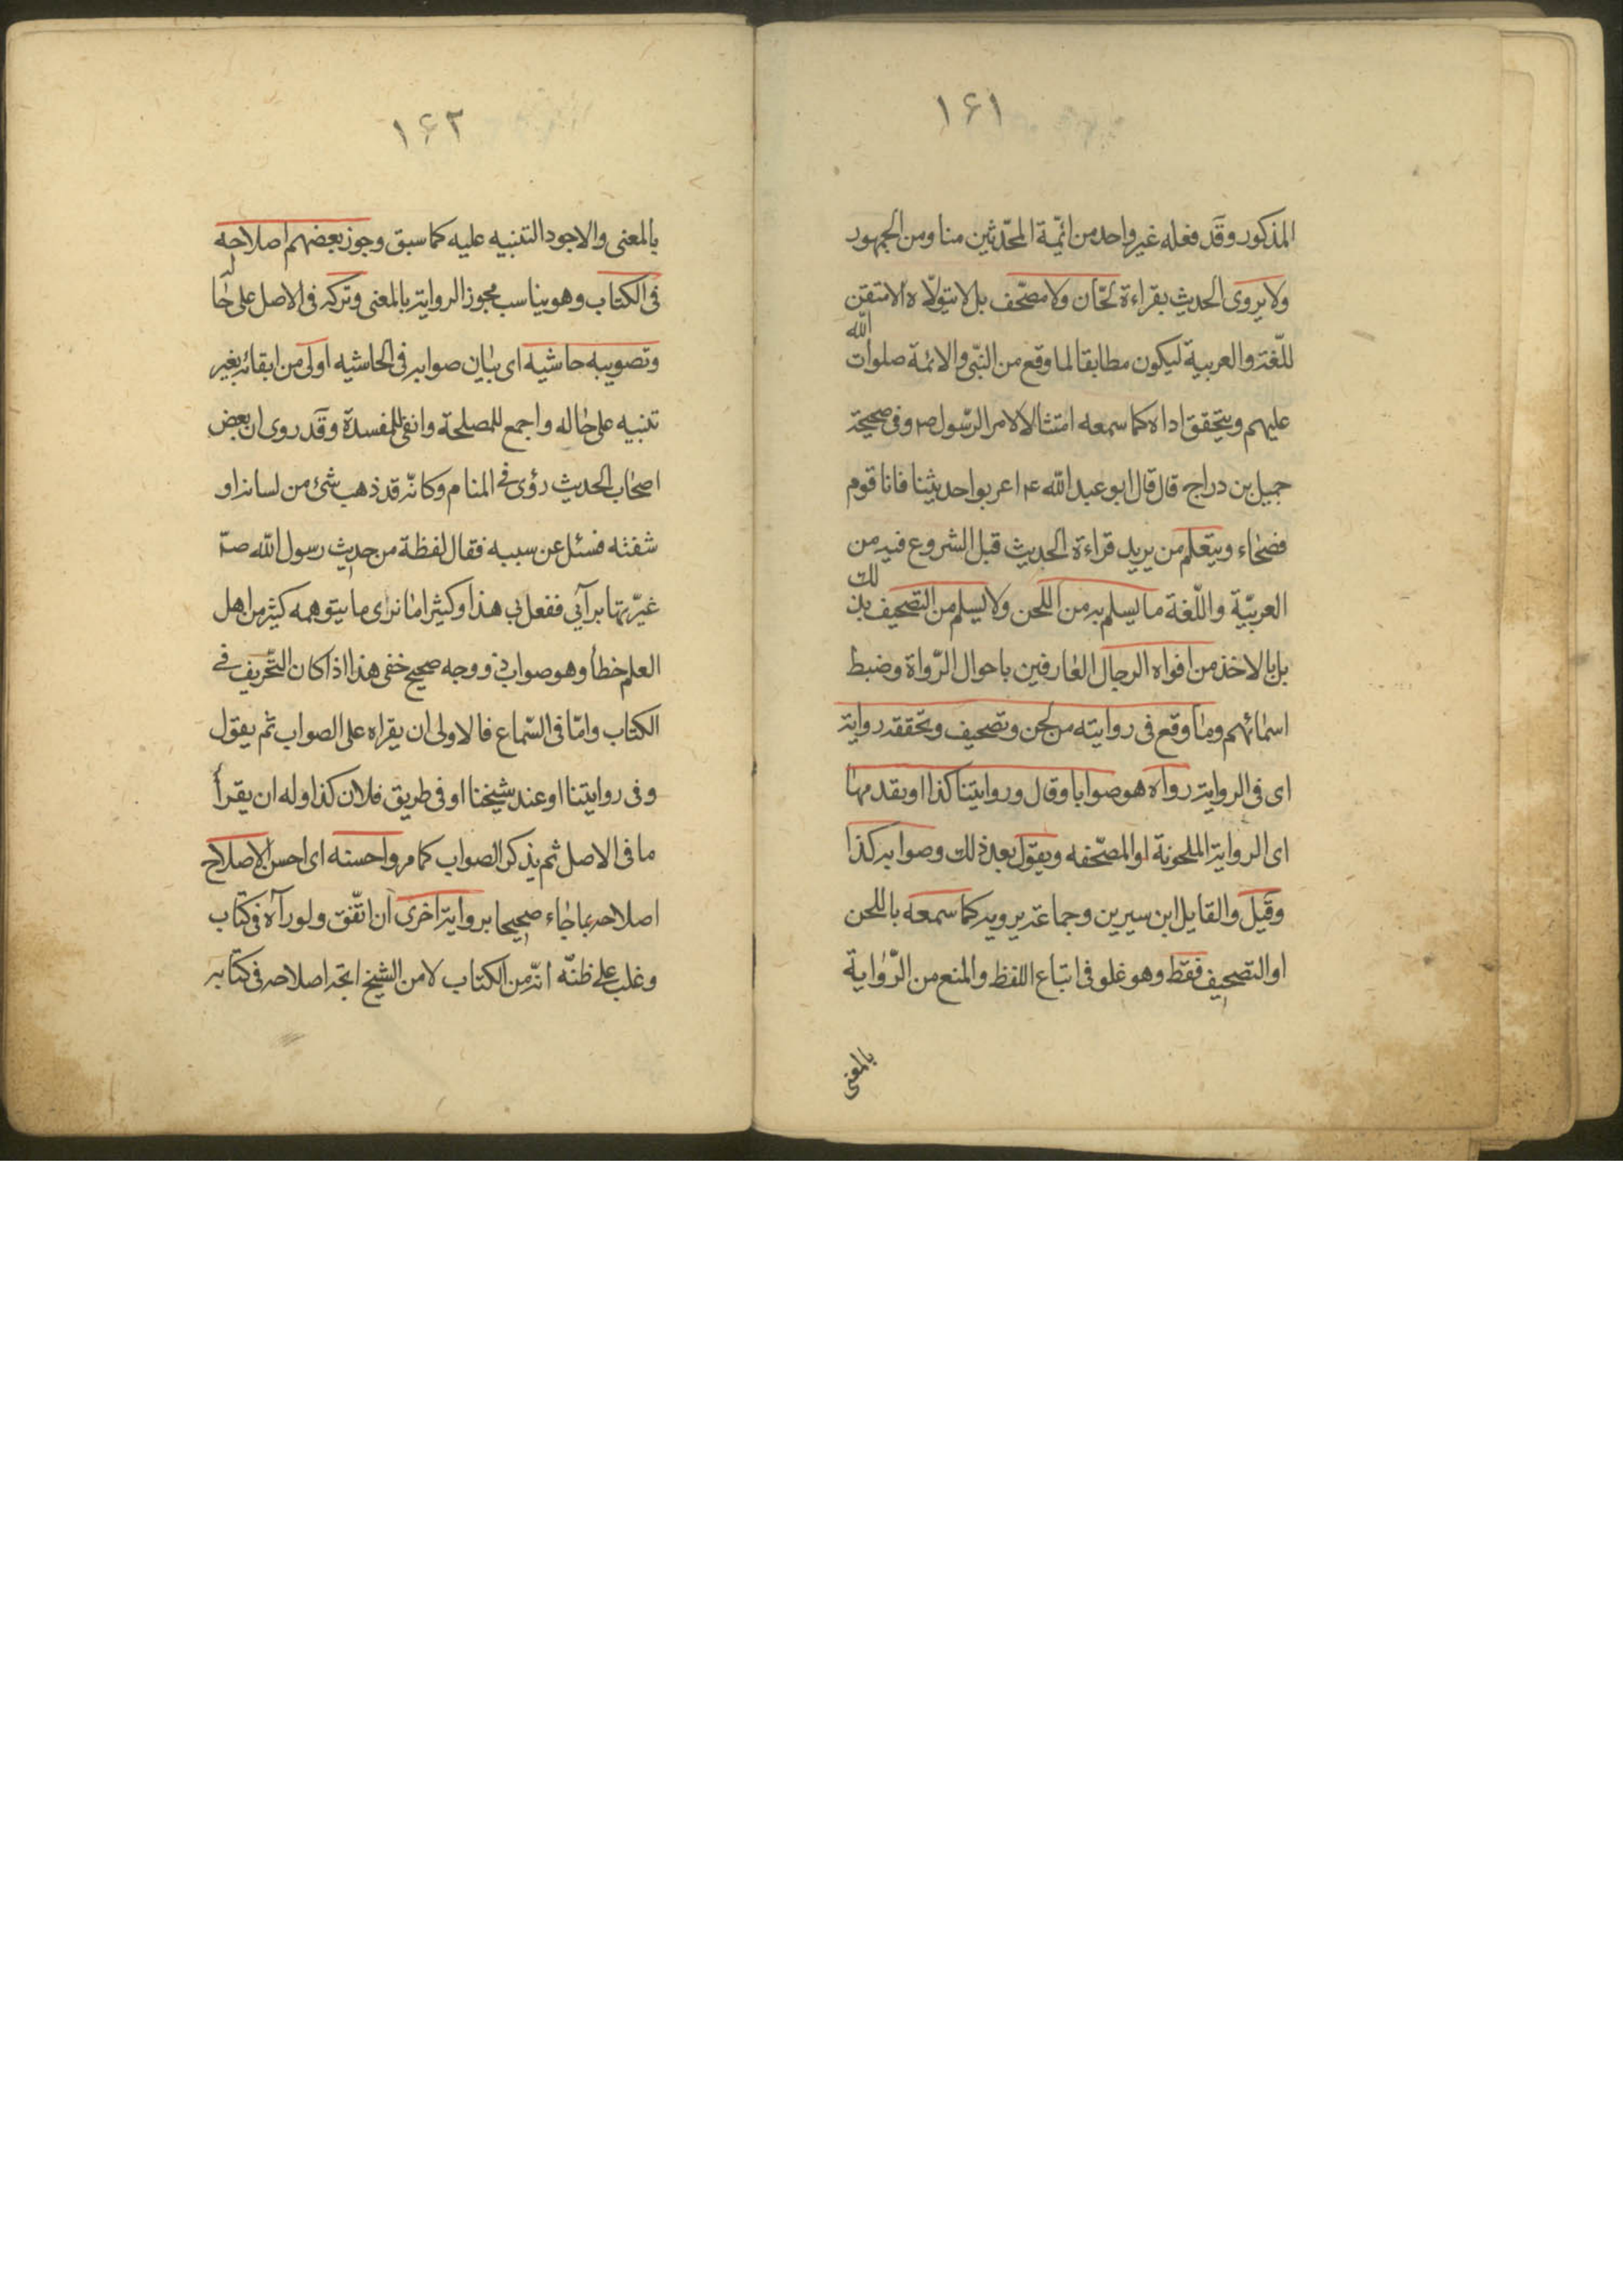 ١۶١
المذكور وقد فعله غير واحد من ائمّة المحدّثين منا ومن الجمهور
ولا يروى الحديث بقراءة لحّان ولا مصحّف بل لا يتولّاه الا متقن
للّغة والعربية ليكون مطابقا لما وقع من النبّى والائمة صلوات الله
عليهم ويتحقق اداه كما سمعه امتثالا لامر الرّسول ص وفى صحيحة
جميل بن دراج قال قال ابو عبد الله ع اعربوا حديثنا فانا قوم
فصحاء ويتعلم من يريد قراءة الحديث قبل الشروع فيه من
العربيّة واللّغة ما يسلم به من اللحن ولا يسلم من التصحيف بذلك
بل بالاخذ من افواه الرجال العارفين باحوال الرّواة وضبط
اسمائهم وما وقع فى روايته من لحن وتصحيف وتحققه رواية
اى فى الرواية رواه هو صوابا وقال وروايتنا كذا او يقدمها
اى الرواية الملحونة او المصحّفه ويقول بعد ذلك وصوابه كذا
وقيل والقايل ابن سيرين وجماعة يرويه كما سمعه باللحن
او التصحيف فقط وهو غلو فى اتباع اللفظ والمنع من الرّواية
بالمعنى
١۶٢
بالمعنى والاجود التنبيه عليه كما سبق وجوز بعضهم اصلاحه
فى الكتاب وهو يناسب مجوز الرواية بالمعنى وتركه فى الاصل على حاله
وتصويبه حاشيه اى بيان صوابه فى الحاشيه اولى من ابقائه بغير
تنبيه على حاله واجمع للمصلحة وانفى للمفسدة وقد روى ان بعض
اصحاب الحديث رؤى فى المنام وكانّه قد ذهب شئ من لسانه او
شفته فسئل عن سببه فقال لفظة من حديث رسول الله ص
غيّرتها برأيي ففعل بى هذا وكثيرا ما نرى ما يتوهمه كثير من اهل
العلم خطأ وهو صواب ذو وجه صحيح خفى هذا اذا كان التّحريف فى
الكتاب وامّا فى السّماع فالاولى ان يقراه على الصواب ثم يقول
وفى روايتنا او عند شيخنا او فى طريق فلان كذا وله ان يقرأ
ما فى الاصل ثم يذكر الصواب كما مر واحسنه اى احسن الاصلاح
اصلاحه بما جاء صحيحا برواية اخرى ان اتّفق ولو رآه فى كتاب
وغلب على ظنّه انّه من الكتاب لا من الشيخ اتجه اصلاحه فى كتابه